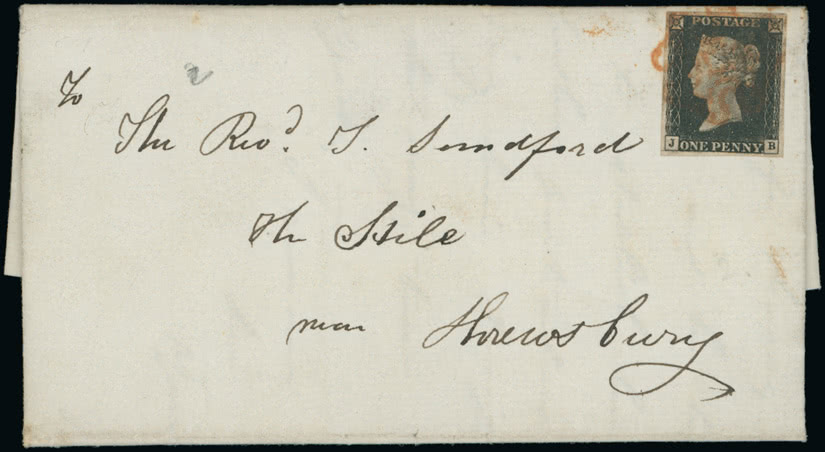 POSTAGE
J ONE PENNY B
2
To
The Revd. T. Sandford
The Stile
near Shrewsbury